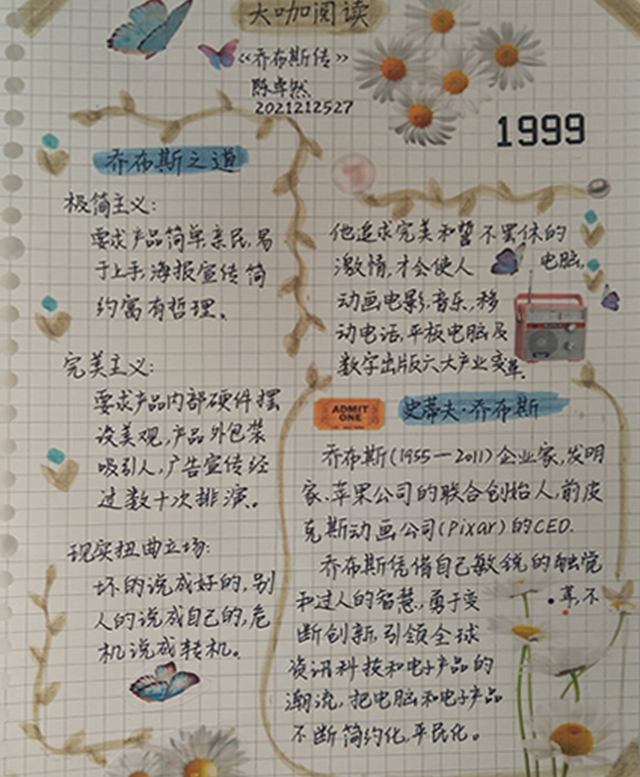 大咖阅读
《乔布斯传》
陈卓然
2021212527
1999
乔布斯之道
极简主义:
要求产品简单,亲民,易
于上手,海报宣传简
约富有哲理。
完美主义:
要求产品内部硬件摆
设美观,产品外包装
吸引人,广告宣传经
过数十次排演。
现实扭曲立场:
坏的说成好的,别
人的说成自己的,危
机说成转机。
他追求完美和誓不罢休的
激情,才会使人电脑,
动画电影,音乐,移
动电话,平板电脑及
数字出版六大产业变革。
ADMIT
ONE
史蒂夫·乔布斯
乔布斯(1955—2011)企业家,发明
家、苹果公司的联合创始人,前皮
克斯动画公司(Pixar)的CEO.
乔布斯凭借自己敏锐的触觉
和过人的智慧,勇于变革,不
断创新,引领全球
资讯科技和电子产品的
潮流,把电脑和电子产品
不断简约化,平民化。